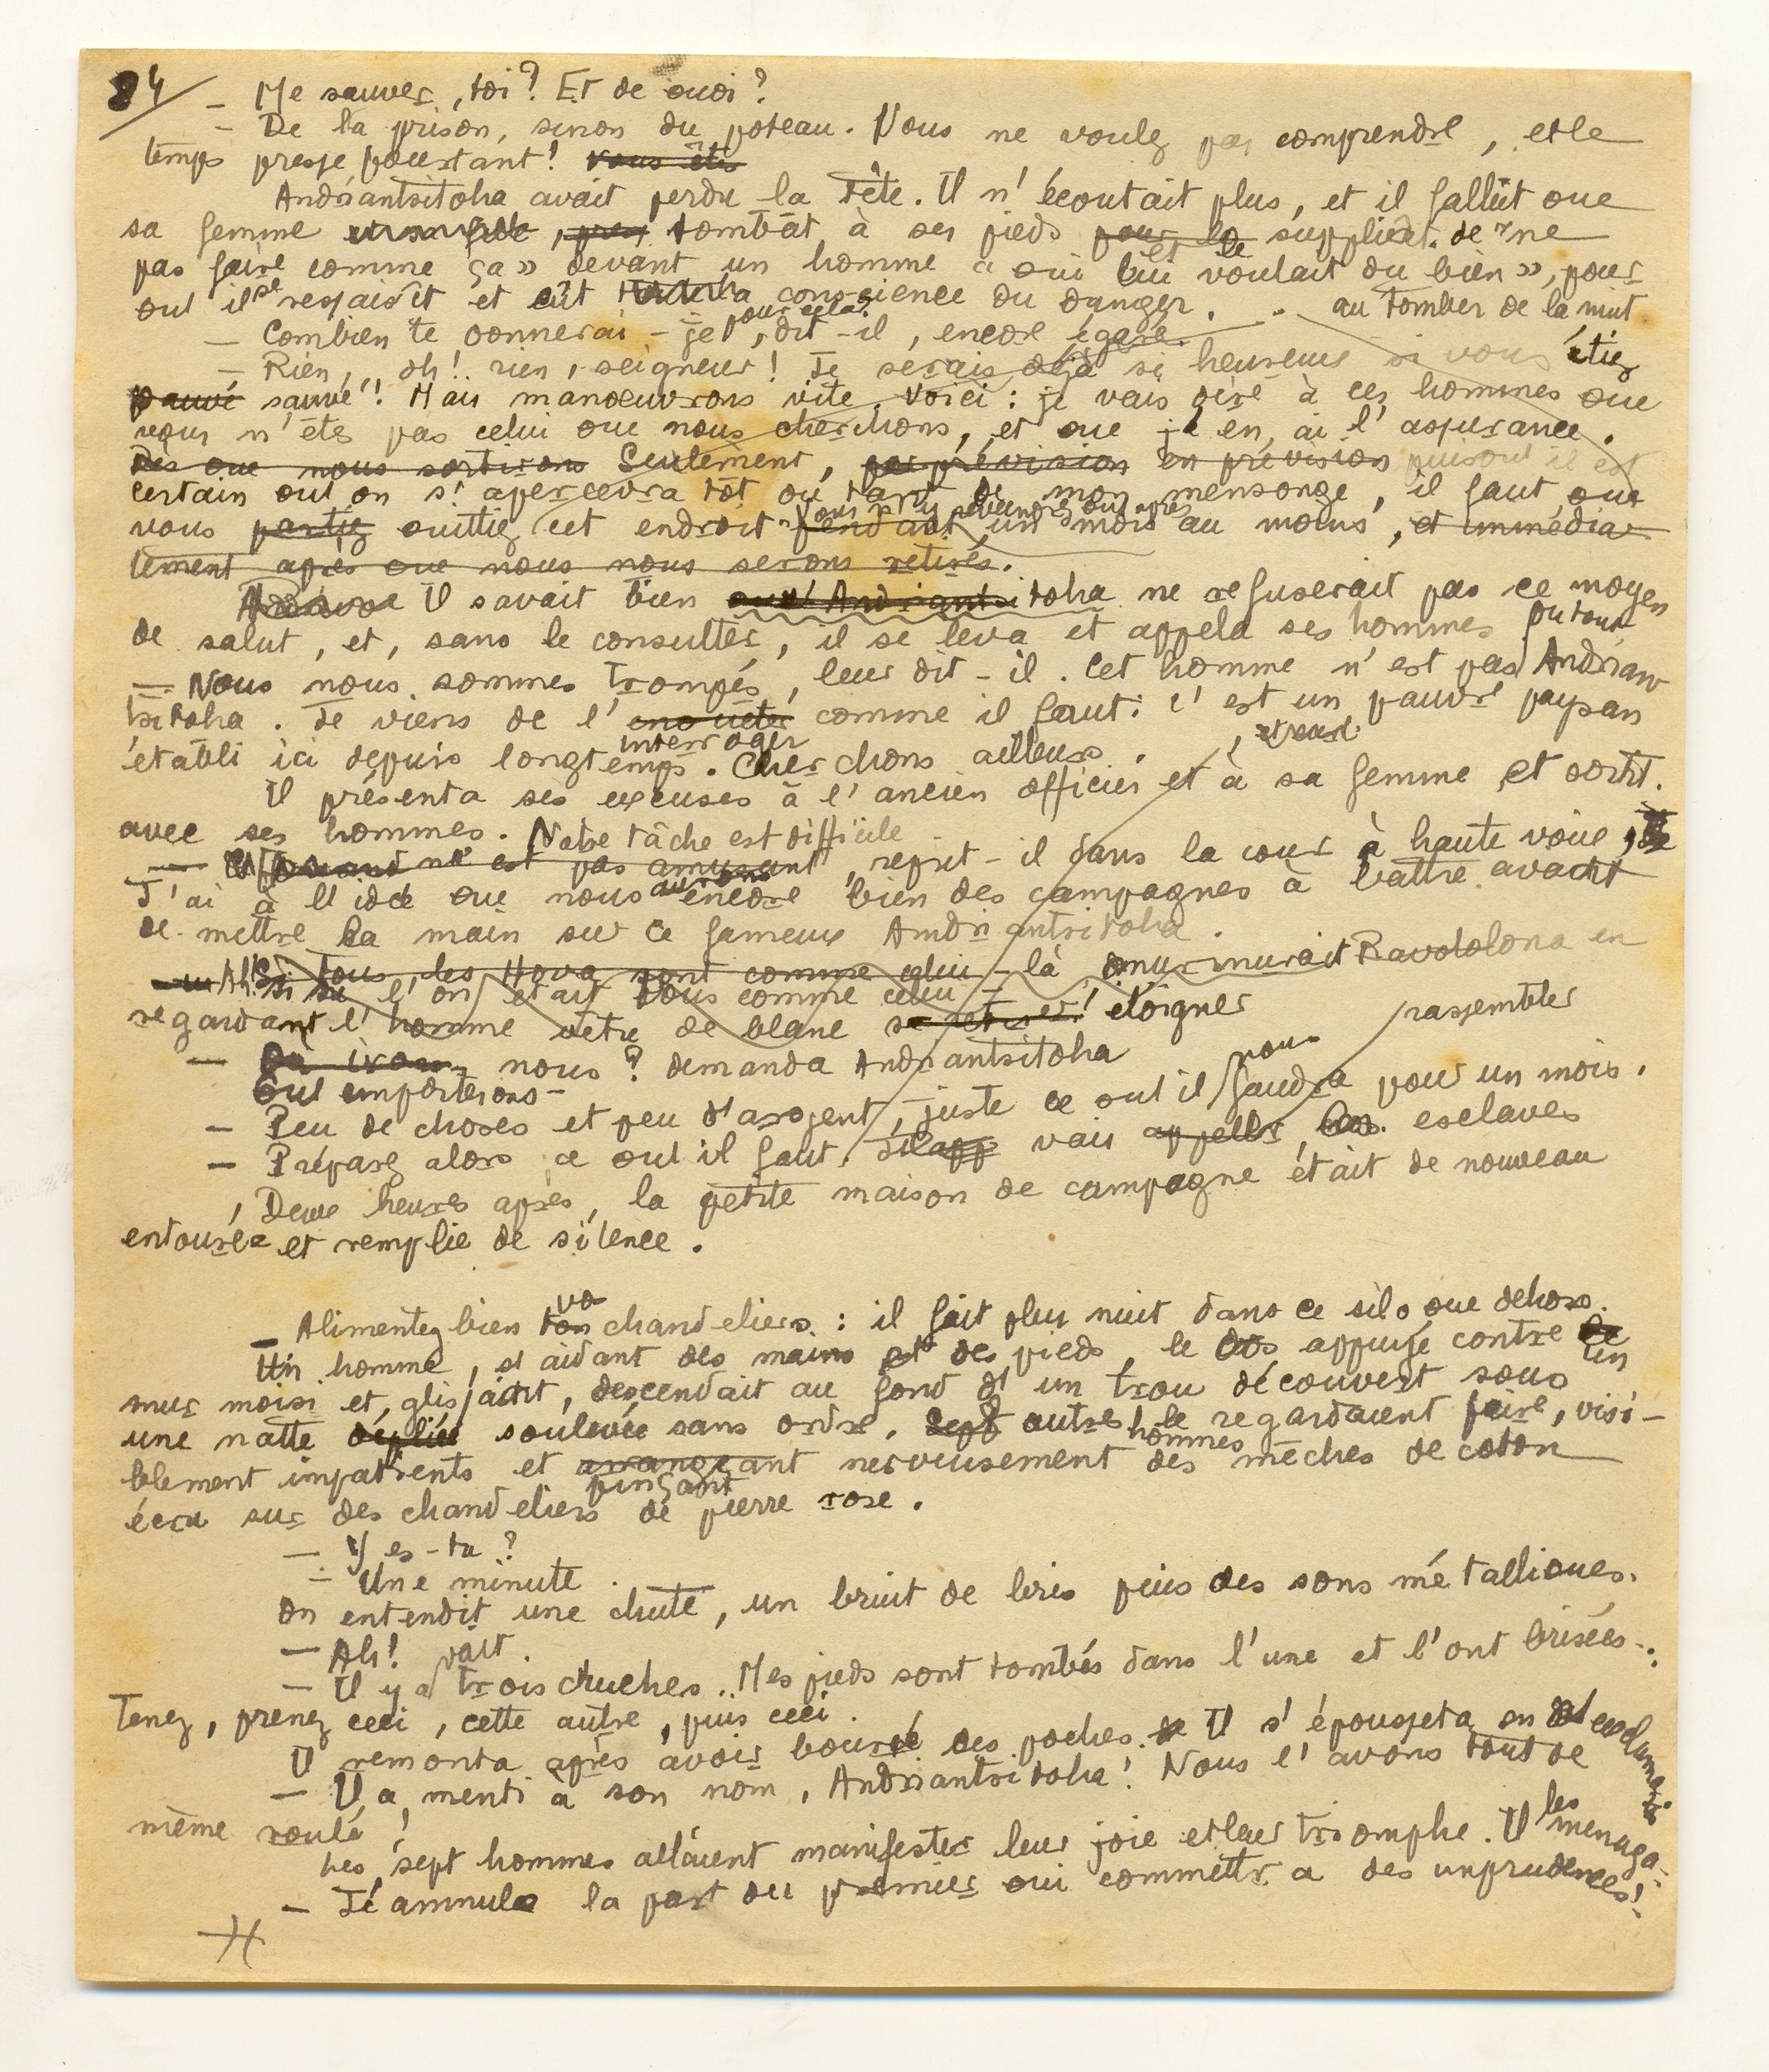 84/ — Me sauver, toi ? Et de quoi ?
— De la prison, sinon du poteau. Vous ne voulez pas comprendre, et le
temps presse pourtant ! vous êtes
Andriantsitoha avait perdu la tête. Il n'écoutait plus, et il fallût que
sa femme tombât à ses pieds pour le suppliât de « ne
pas faire comme ça » devant un homme « qui lui voulait du bien », pour
qu'il se ressaisît et eût la conscience du danger.
— Combien te donnerai-je pour cela ?, dit-il, encore égaré. au tomber de la nuit
— Rien, oh ! rien, seigneur ! Je serais déjà si heureux si vous étiez
sauvé ! Mais manœuvrons vite. Voici : je vais dire à ces hommes que
vous n'êtes pas celui que nous cherchons, et que j'en ai l'assurance.
Dès que nous sortirons Seulement, par prévision en prévision puisqu'il est
certain qu'on s'apercevra tôt ou tard de mon mensonge, il faut que
vous partiez quittiez cet endroit pendant un mois au moins, et immédia-
tement après que nous nous serons retirés.
Il savait bien qu'Andriantsitoha ne refuserait pas ce moyen
de salut, et, sans le consulter, il se leva et appela ses hommes
— Nous nous sommes trompés, leur dit-il. Cet homme n'est pas du tout Andrian-
tsitoha. Je viens de l'enquêter interroger comme il faut : c'est un pauvre paysan
établi ici depuis longtemps. Cherchons ailleurs.
Il présenta ses excuses à l'ancien officier et à sa femme, et sortit
avec ses hommes.
— Notre tâche est difficile n'est pas amusant, reprit-il dans la cour à haute voix,
J'ai à l'idée que nous aurons encore bien des campagnes à battre avant
de mettre la main sur ce fameux Andriantsitoha.
— Ah ! Si tous les Hova sont comme celui-là murmurait Ravololona en
si l'on était tous comme celui-
regardant l'homme vêtu de blanc se retirer ! éloigner
— nous ? demanda Andriantsitoha
Qu'emporterons-
— Peu de choses et peu d'argent, juste ce qu'il nous faudra pour un mois.
— Préparez alors ce qu'il faut. Je vais appeler rassembler les esclaves
Deux heures après, la petite maison de campagne était de nouveau
entourée et remplie de silence.
— Alimentez bien ton vos chandeliers : il fait plus nuit dans ce silo que dehors.
Un homme, s'aidant des mains et des pieds, le dos appuyé contre le un
mur moisi et, glissant, descendait au fond d'un trou découvert sous
une natte dépliée soulevée sans ordre. Sept autres hommes le regardaient faire, visi-
blement impatients et arrangeant pinçant nerveusement des mèches de coton
écru sur des chandeliers de pierre rose.
— Y es-tu ?
— Une minute.
On entendit une chute, un bruit de bris puis des sons métalliques.
— Ah !
— Il y avait trois cruches.. Mes pieds sont tombés dans l'une et l'ont brisées...
Tenez, prenez ceci, cette autre, puis ceci.
Il remonta après avoir bourré des poches. Il s'épousseta en s'exclamant :
— Il a menti à son nom, Andriantsitoha ! Nous l'avons tout de
même roulé !
Les sept hommes allaient manifester leur joie et leur triomphe. Il les menaça :
— J'annule la part du premier qui commettra des imprudences !